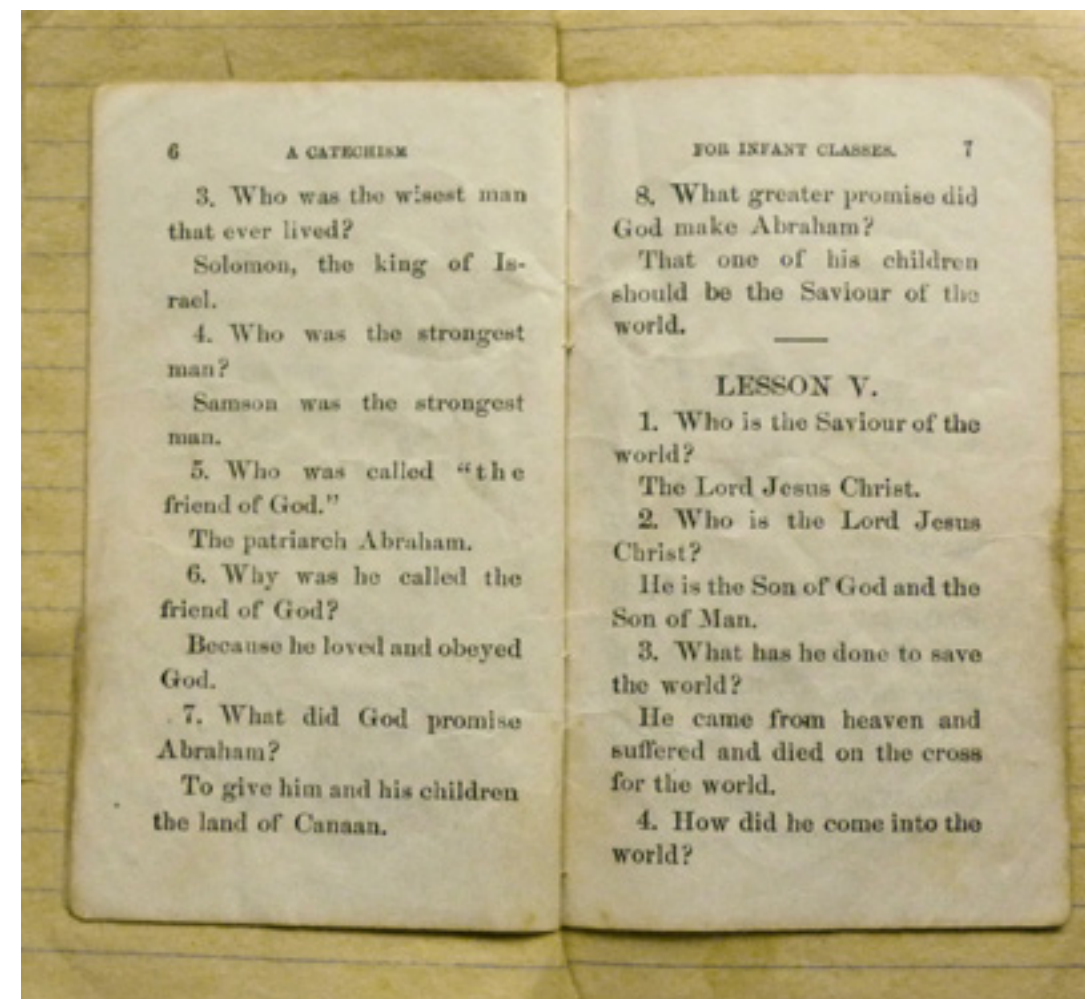 6 A CATECHISM
3. Who was the wisest man
that ever lived?
Solomon, the king of Is-
rael.
4. Who was the strongest
man?
Samson was the strongest
man.
5. Who was called "the
friend of God."
The patriarch Abraham.
6. Why was he called the
friend of God?
Because he loved and obeyed
God.
7. What did God promise
Abraham?
To give him and his children
the land of Canaan.
FOR INFANT CLASSES. 7
8. What greater promise did
God make Abraham?
That one of his children
should be the Saviour of the
world.
LESSON V.
1. Who is the Saviour of the
world?
The Lord Jesus Christ.
2. Who is the Lord Jesus
Christ?
He is the Son of God and the
Son of Man.
3. What has he done to save
the world?
He came from heaven and
suffered and died on the cross
for the world.
4. How did he come into the
world?